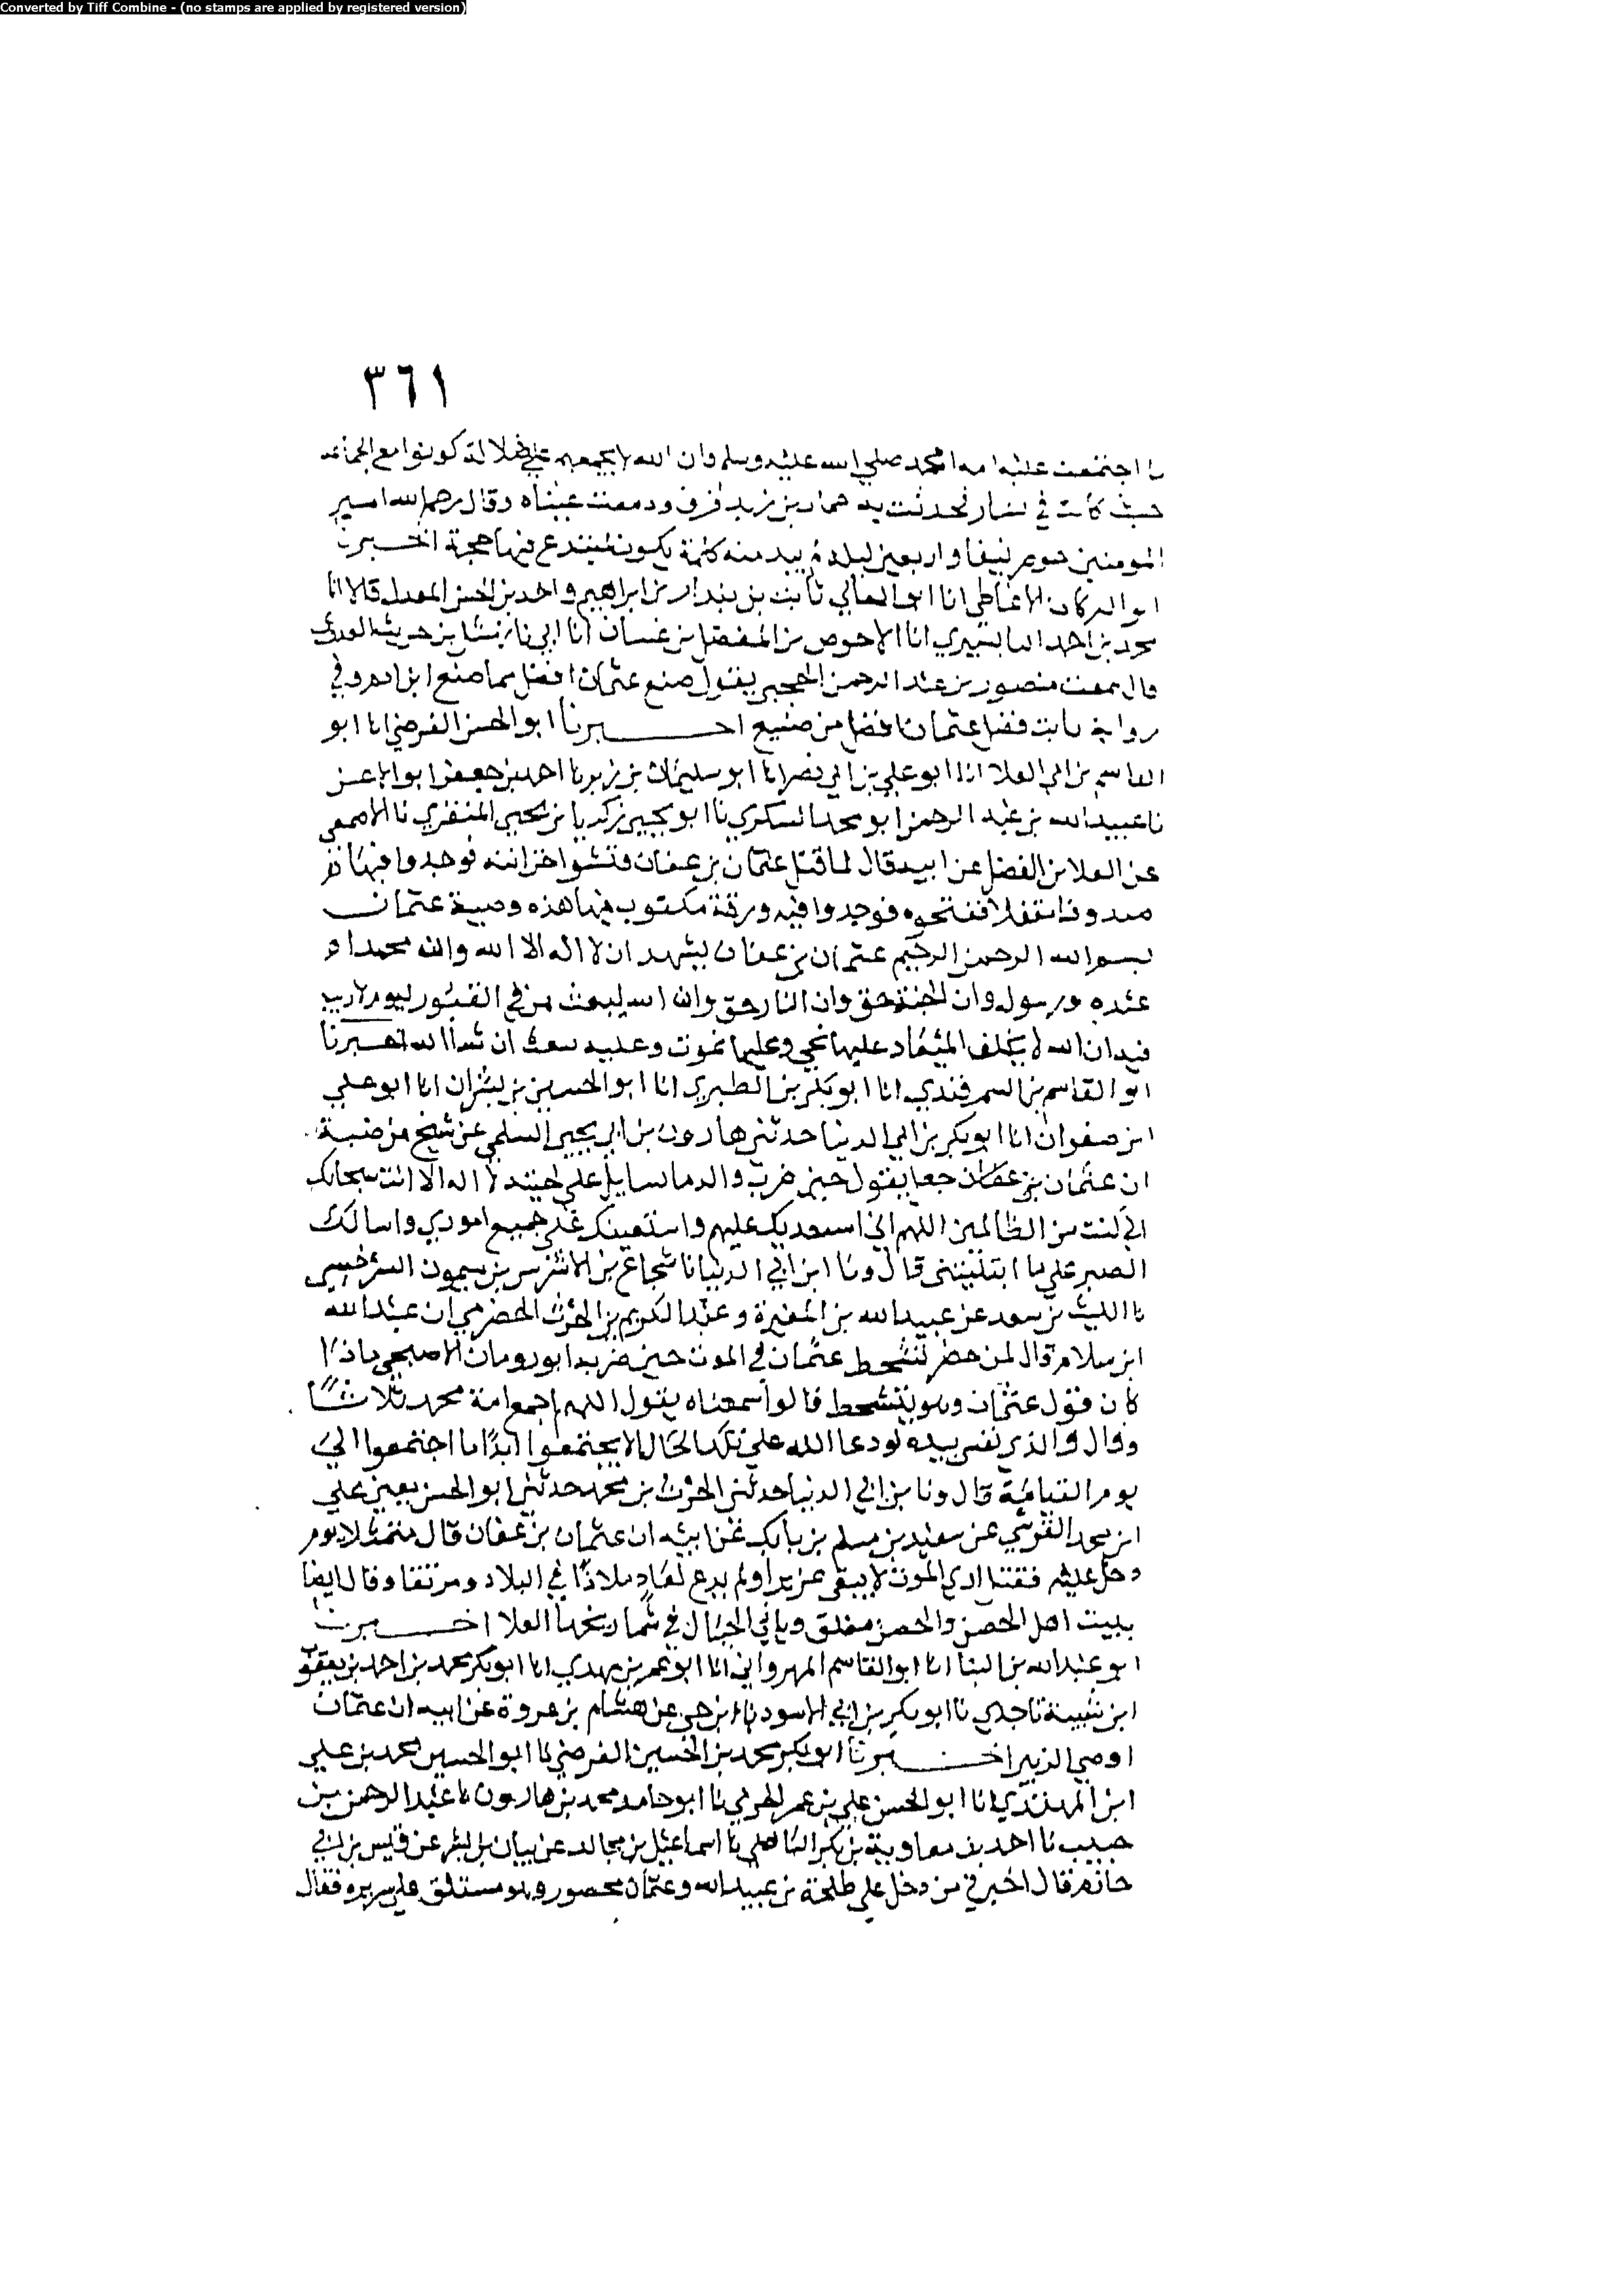 Converted by Tiff Combine - (no stamps are applied by registered version)
٣٦١
ما اجتمعت عليه امة محمد صلي الله عليه وسلم وان الله لا يجمعهم علي ضلالة كونوا مع الجماعه
حيث كانت في فحدثت به حماد بن زيد فرق ودمعت عيناه وقال رحم الله امير
المومنين حوصر نيفا واربعين ليلة لم يبد منه كلمة يكون لمبتدع فيها حجة اخبرنا
ابو البركات الانماطي انا ابو المعالي ثابت بن بندار بن ابراهيم واحمد بن الحسن المعدل قالا انا
محمد بن احمد البابسيري انا الاحوص بن المفضل بن غسان انا ابي نا بن حريث العدوي
قال سمعت منصور بن عبد الرحمن الحجبي يقول صنع عثمان افضل مما صنع ابن ادم وفي
رواية ثابت فضل عثمان افضل من صنيع اخبرنا ابو الحسن الفرضي انا ابو
القاسم بن ابي العلا انا ابو علي بن ابي نصر انا ابو سليمان بن زبر نا احمد بن جعفر ابو
نا عبيد الله بن عبد الرحمن ابو محمد السكري نا ابو يحيي زكريا بن يحيي المنقري نا الاصمعي
عن العلا بن الفضل عن ابيه قال لما قتل عثمان بن عفان فتشوا خزانته فوجدوا فيها
صندوقا مقفلا ففتحوه فوجدوا فيه ورقة مكتوب فيها هذه وصية عثمان
بسم الله الرحمن الرحيم عثمان بن عفان يشهد ان لا اله الا الله وان محمدا
عبده ورسوله وان الجنة حق وان النار حق وان الله يبعث من في القبور ليوم لا ريب
فيه ان الله لا يخلف الميعاد عليها نحي وعليها نموت وعليها نبعث ان شا الله اخبرنا
ابو القاسم بن السمرقندي انا ابو بكر بن الطبري انا ابو الحسين بن بشران انا ابو علي
ابن صفوان انا ابو بكر بن ابي الدنيا حدثني هارون بن ابي يحيي السلمي عن شيخ من ضبة
ان عثمان بن عفان جعل يقول حين ضرب والدما تسايل علي لحيته لا اله الا انت سبحانك
اني كنت من الظالمين اللهم اني استعديك عليهم واستعينك علي جميع اموري واسالك
الصبر علي ما ابتليتني قال ونا ابن ابي الدنيا نا شجاع بن الاشرس بن ميمون السرخسي
نا الليث بن سعد عن عبيد الله بن المغيرة وعبد الكريم بن الحرث الحضرمي ان عبد الله
ابن سلام قال لمن حضر تشحط عثمان في الموت حين ضربه ابو رومان الاصبحي ماذا
كان قول عثمان وهو يتشحط قالوا سمعناه يقول اللهم اجمع امة محمد ثلاثًا
وقال والذي نفسي بيده لو دعا الله علي تلك الحال الا يجتمعوا ابدًا ما اجتمعوا الي
يوم القيامة قال ونا بن ابي الدنيا حدثني الحرث بن محمد حدثني ابو الحسن يعني علي
ابن محمد القرشي عن سعيد بن مسلم بن بانك عن ابيه ان عثمان بن عفان قال متمثلا يوم
دخل عليه فقتل اري الموت لا يبقي عزيزا ولم يدع لعادٍ ملاذًا في البلاد ومرتقا وقال ايضا
يبيت اهل الحصن والحصن مغلق وياتي الجبال في شماريخها العلا اخبرنا
ابو عبد الله بن البنا انا ابو القاسم المهرواني انا ابو عمر بن مهدي انا ابو بكر محمد بن احمد بن يعقوب
ابن شيبة نا جدي نا ابو بكر بن ابي الاسود نا عن هشام بن عروة عن ابيه ان عثمان
اوصي الزبير اخبرنا ابو بكر محمد بن الحسين الفرضي نا ابو الحسين محمد بن علي
ابن المهتدي انا ابو الحسن علي بن عمر الحربي نا ابو حامد محمد بن هارون نا عبد الرحمن بن
حبيب نا احمد بن معاوية بن بكر الباهلي نا اسماعيل بن مجالد عن بيان بن بشر عن قيس بن ابي
حازم قال اخبرني من دخل علي طلحة بن عبيد الله وعثمان محصور وهو مستلق علي سريره فقال